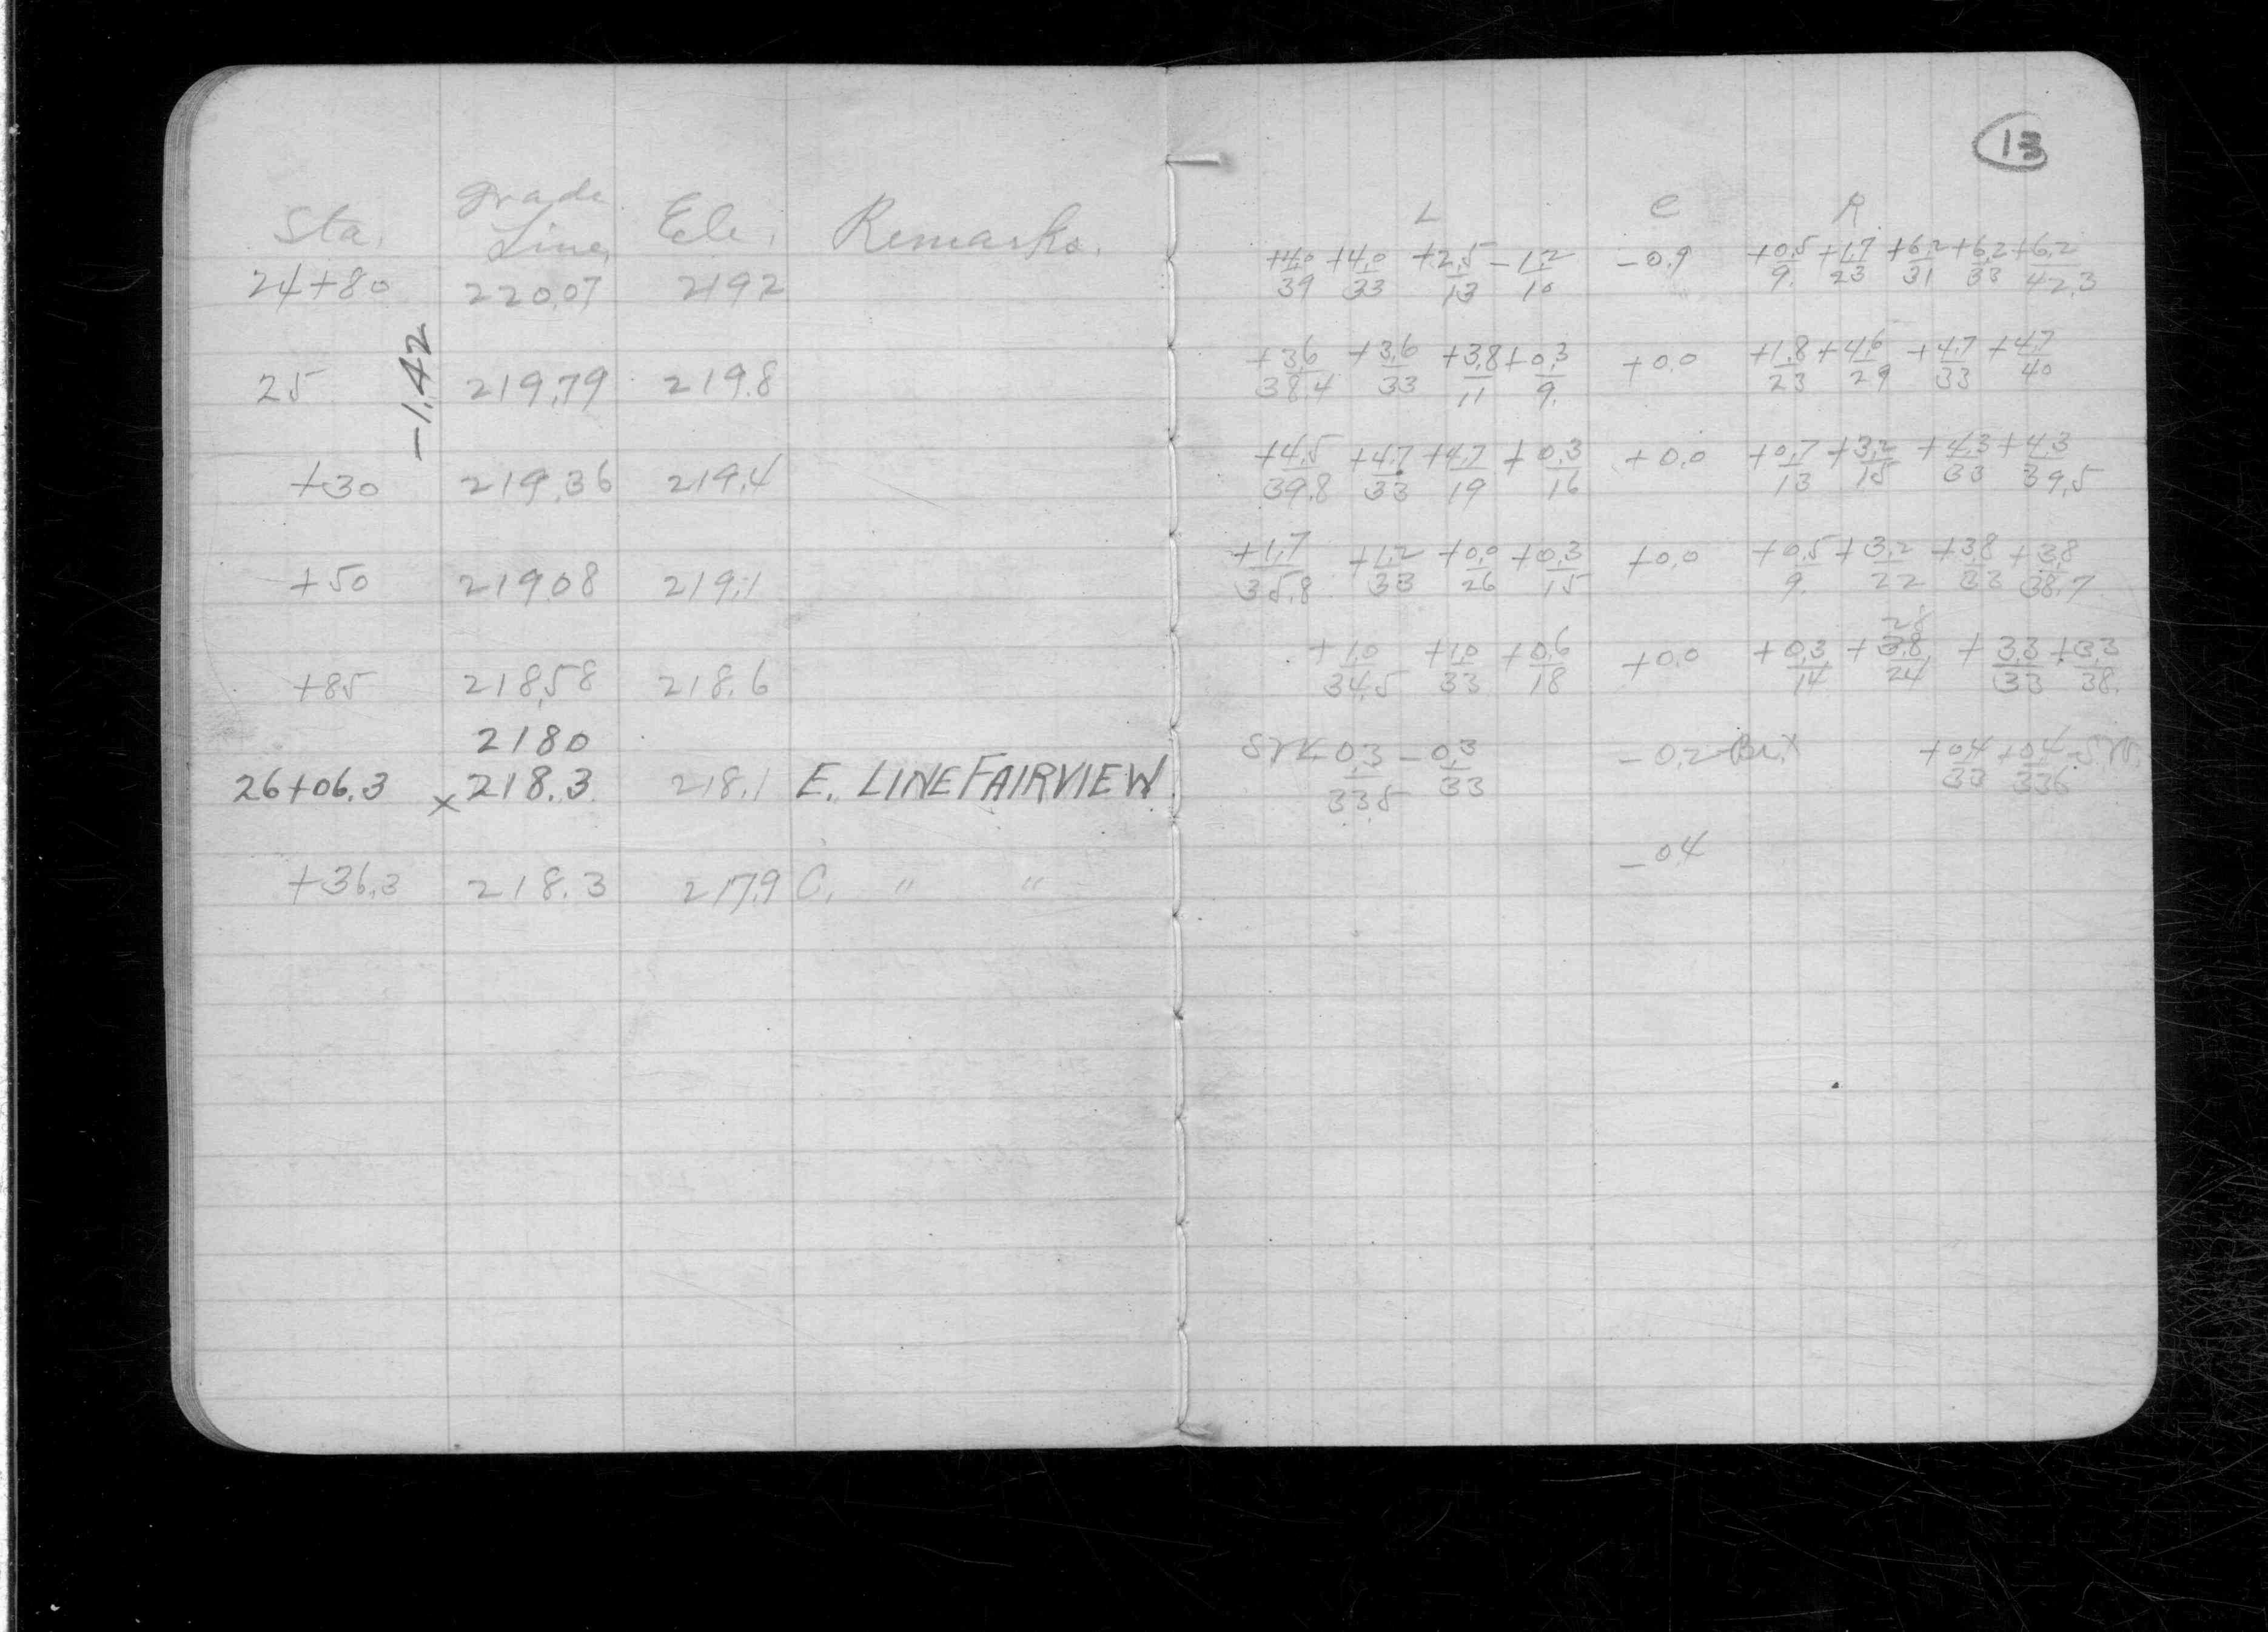 13
Sta. Grade Line, Ele. Remarks. L C R
24+80 220.07 219.2 +4.0/39 +4.0/33 +2.5/13 -1.2/10 -0.9 +0.5/9. +1.7/23 +6.2/31 +6.2/33 +6.2/42.3
-1.42
25 219.79 219.8 +3.6/38.4 +3.6/33 +3.8/11 +0.3/9. +0.0 +1.8/23 +4.6/29 +4.7/33 +4.7/40
+30 219.36 219.4 +4.5/39.8 +4.7/33 +4.7/19 +0.3/16 +0.0 +0.7/13 +3.2/15 +4.3/33 +4.3/39.5
+50 219.08 219.1 +1.7/35.8 +1.2/33 +0.0/26 +0.3/15 +0.0 +0.5/9. +3.2/22 +3.8/33 +3.8/38.7
2.8
+85 218.58 218.6 +1.0/34.5 +1.0/33 +0.6/18 +0.0 +0.3/14 +3.8/24 +3.3/33 +3.3/38.
2180
26+06.3 x 218.3 218.1 E. LINE FAIRVIEW -0.3/33.5 -0.3/33 -0.2 +0.4/33 +0.4/33.6
+36.3 218.3 217.9 C. " " -0.4